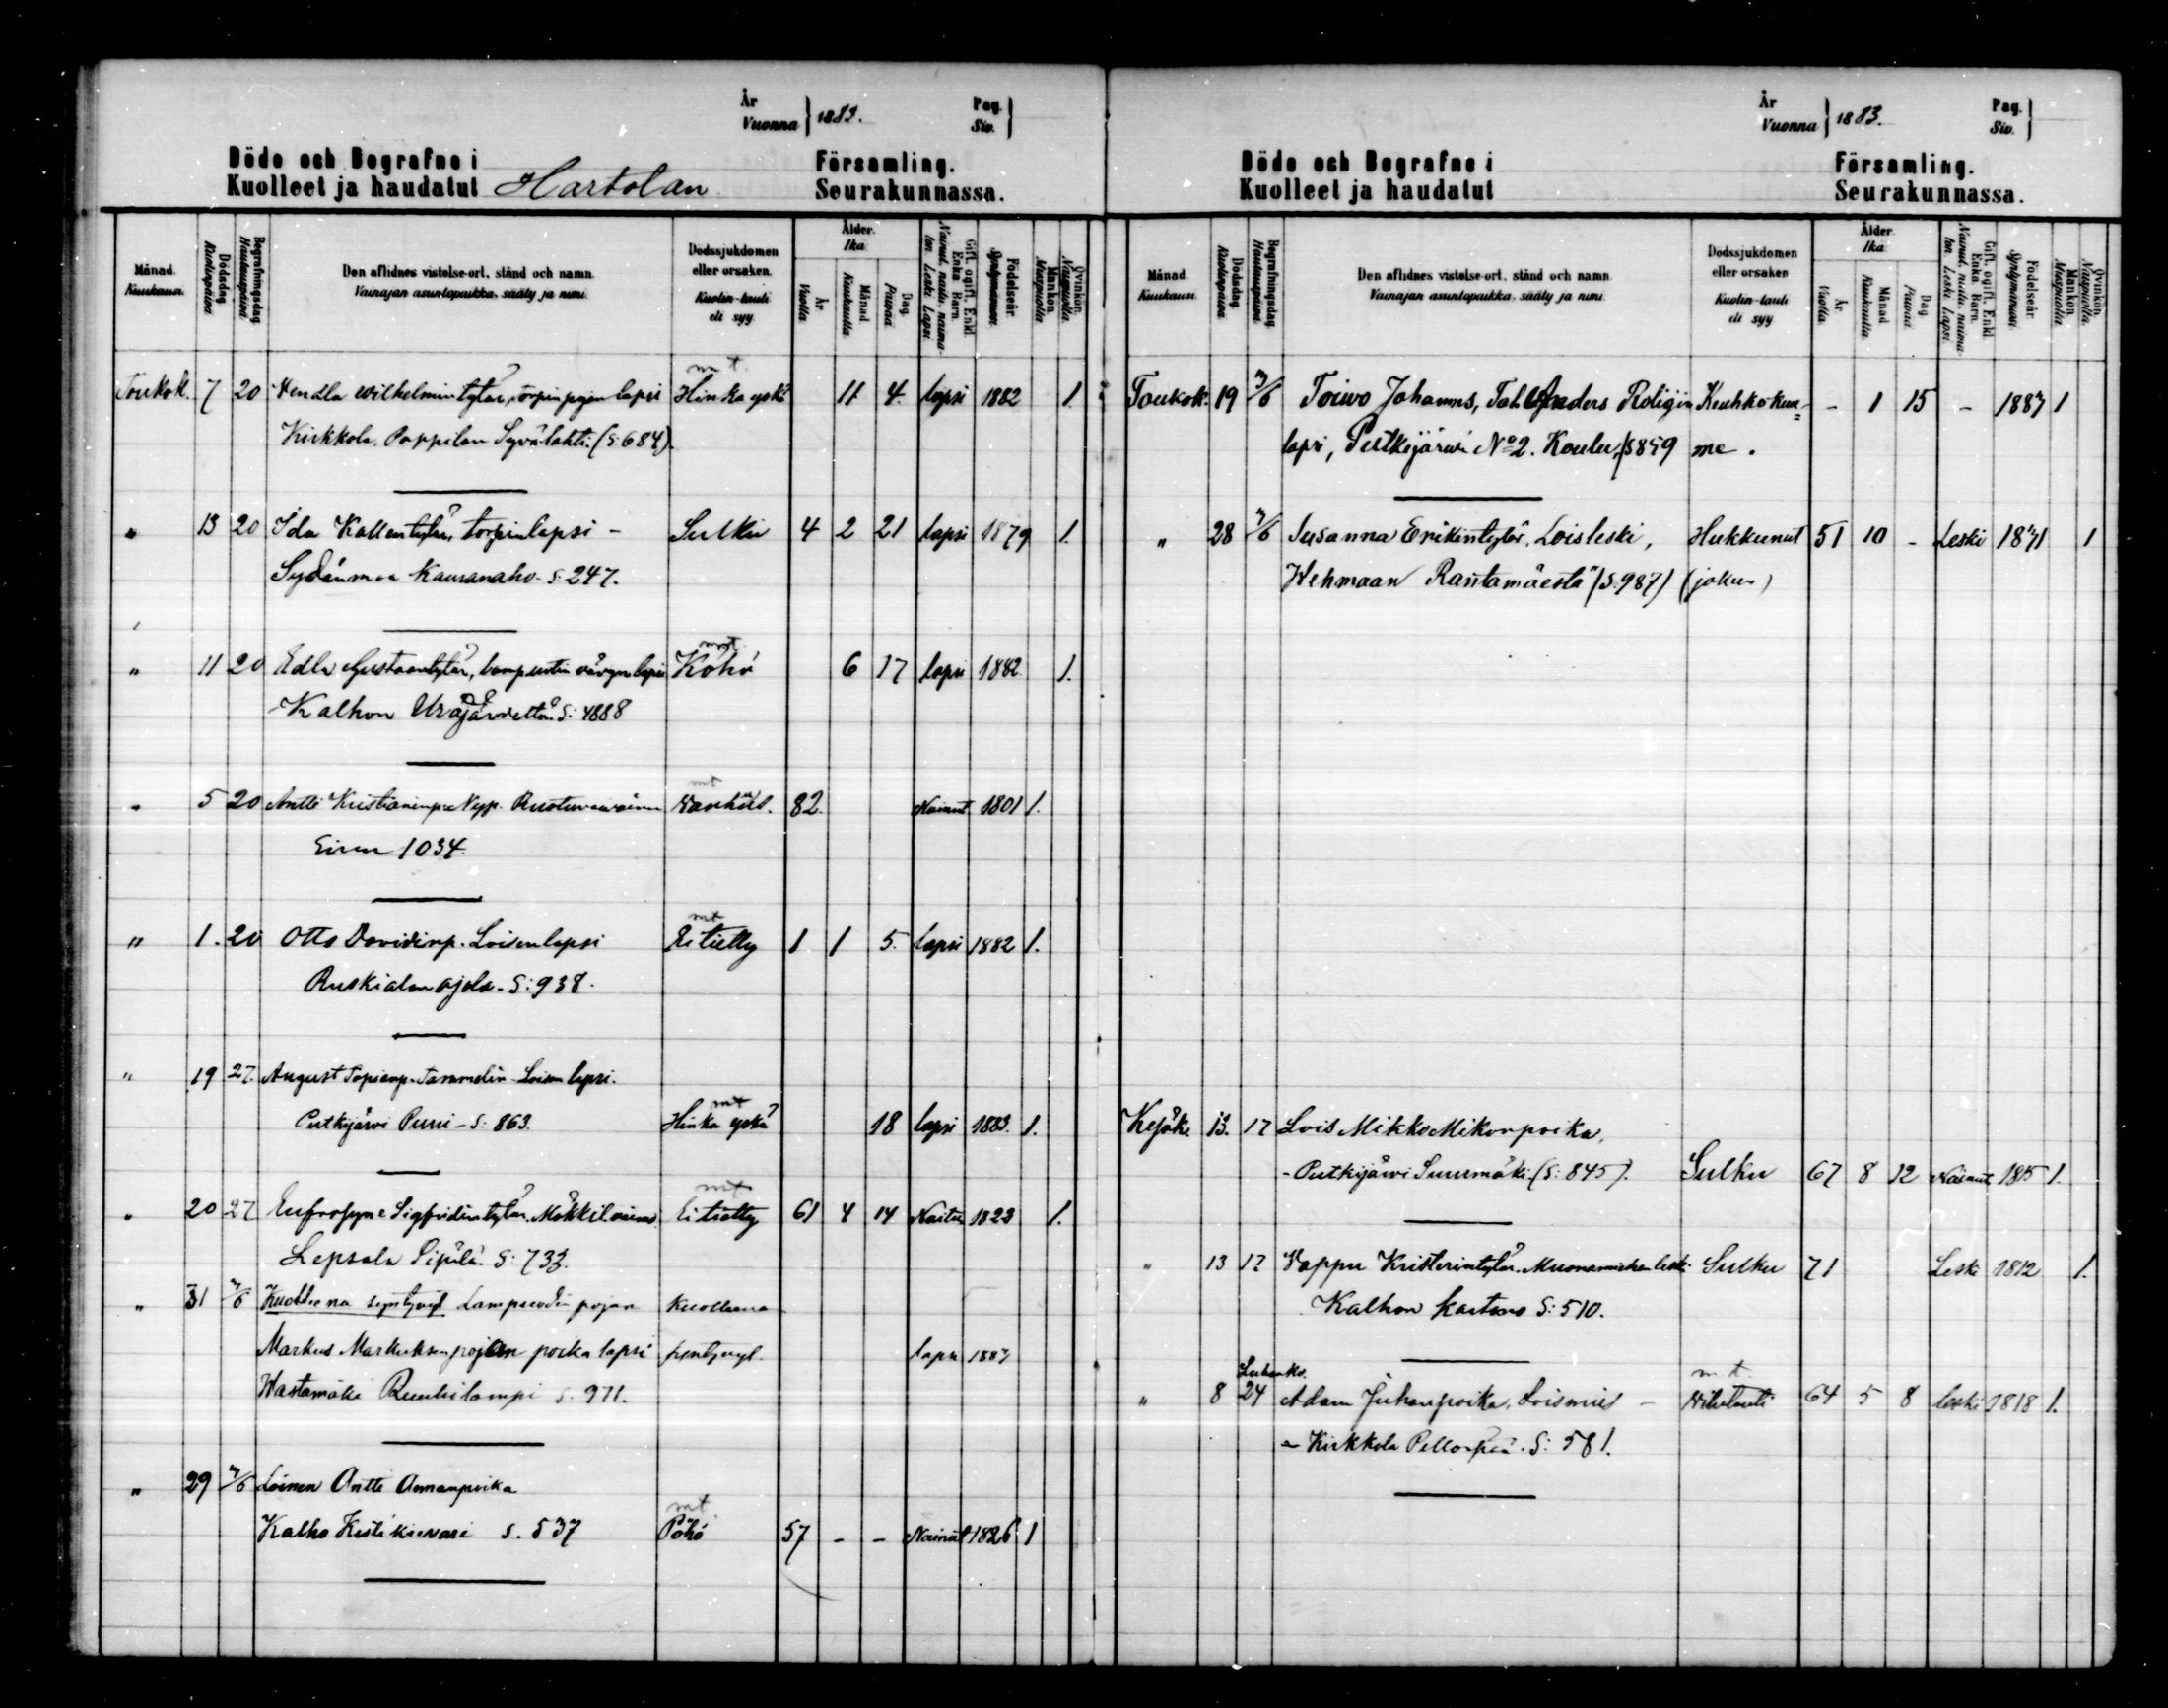 År
Vuonna } 1883.
Pag.
Siv. }
Döde och Begrafne i
Kuolleet ja haudatut Hartolan
Församling.
Seurakunnassa.
Månad.
Kuukausi.
Dödsdag.
Kuolinpäivä
Begrafningsdag
Hautauspäivä
Den aflidnes vistelse-ort, stånd och namn.
Vainajan asuntopaikka, sääty ja nimi.
Dödssjukdomen
eller orsaken.
Kuolin-tauti
eli syy.
Ålder.
Ikä
År
Vuotta
Månad.
Kuukautta
Dag.
Päivää
Gift, ogift, Enkl.
Enka Barn.
Nainut, naitu, naima-
ton. Leski Lapsi
Födelseår
Syntymävuosi
Mankön
Miespuolta
Qvinkön.
Naispuolta.
Toukok. 7 20 Hendla Wilhelmintytär, lapsi Hinkuyskä mt 11 4. lapsi 1882 1
Kirkkola, Pappilan Syvälahti. (S: 684).
" 13 20 Ida Kallentytär, torpinlapsi - Sulku 4 2 21 lapsi 1879 1.
Sydänmaa Kauranaho - S: 247.
" 11 20 Edla Gustaantytär, lapsi Köhö mt 6 17 lapsi 1882 1.
Kalhon S: 4888
" 5 20 Antti Kristianinp. Nyp. Ruotuvaivainen mt 82. Nainut 1801 1.
1034.
" 1. 20 Otto Davidinp. Loisenlapsi Ei tietty mt 1 1 5. lapsi 1882 1.
Ruskialan ojala - S: 938.
" 19 27. August Topianp. Tammelin - Loisen lapsi.
Putkijärvi Puru - S: 863. Hinku yskä mt 18 lapsi 1883. 1.
" 20 27 Eufrosyne Sigfridintytär. Mökkil. vaimo Ei tietty mt 61 4 14 Naitu 1823 1.
Lepsala Pipälä. S: 733.
" 31 3/6 Kuolleena syntynyt Lampuodin pojan Kuolleena
Markus Markuksenpojan poika lapsi syntynyt. lapsi 1883
Wastamäki Ruuhilampi S. 971.
" 29 3/6 Loinen Antti Aamanpoika
Kalho Kestikievari S. 537 Pöhö mt 57 - - Nainut 1826 1
År
Vuonna } 1883.
Pag.
Siv. }
Döde och Begrafne i
Kuolleet ja haudatut
Församling.
Seurakunnassa.
Månad.
Kuukausi.
Dödsdag.
Kuolinpäivä
Begrafningsdag
Hautauspäivä
Den aflidnes vistelse-ort, stånd och namn.
Vainajan asuntopaikka, sääty ja nimi.
Dödssjukdomen
eller orsaken
Kuolin-tauti
eli syy
Ålder.
Ikä
År
Vuotta
Månad.
Kuukautta
Dag.
Päivää
Gift, ogift, Enkl
Enka Barn.
Nainut, naitu, naima-
ton. Leski Lapsi.
Födelseår
Syntymävuosi
Mankön.
Miespuolta
Qvinkön.
Naispuolta.
Toukok. 19 3/6 Toiwo Johannes, Tal. Anders Roligin Keuhkokuu= - 1 15 - 1883 1
lapsi, Putkijärwi No 2. Koulu, (S 859 me.
" 28 3/6 Susanna Erikintytär, Loisleski, Hukkunut 51 10 - Leski 1831 1
Wehmaan Rantamäestä (S. 987) (jokeen)
Kesäk. 13. 17 Lois Mikko Mikonpoika,
- Putkijärwi Suurmäki. (S: 845). Sulku 67 8 12 Nainut 1815 1.
" 13 17 Wappu Kristerintytär. Muonamiehen leski Sulku 71 Leski 1812 1.
Kalhon kartano S: 510.
Luhanka.
" 8 24 Adam Juhanpoika, Loismies - m.t. 64 5 8 leski 1818 1.
- Kirkkola Pellonpää. S: 581.